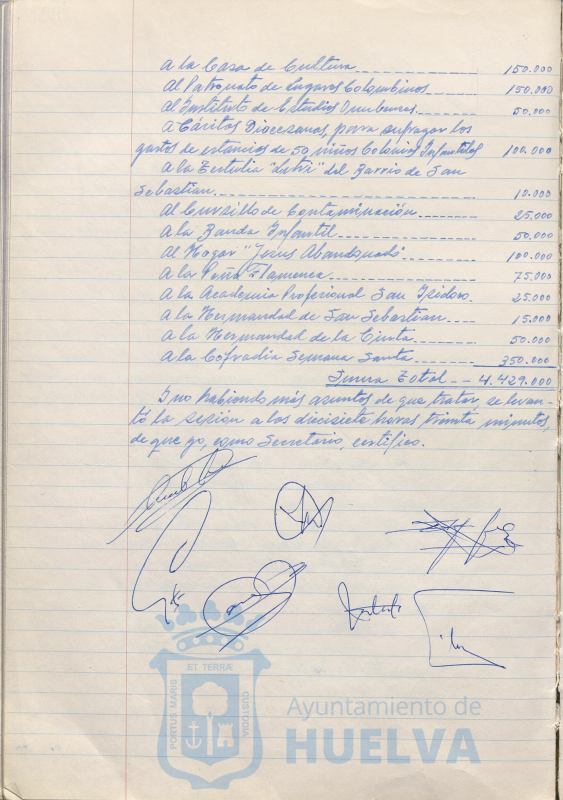 A la Casa de Cultura ------------ 150.000
Al Patronato de Lugares Colombinos ------ 150.000
Al Instituto de Estudios Onubenses ------ 50.000
A Cáritas Diocesanas, para sufragar los
gastos de estancias de 50 niños Colonias Infantiles 100.000
A la Tertulia "Litri" del Barrio de San
Sebastián ------------ 10.000
Al Cursillo de Contaminación ------ 25.000
A la Banda Infantil ------------ 50.000
Al Hogar "Jesús Abandonado" ------ 100.000
A la Peña Flamenca ------------ 75.000
A la Academia Profesional San Isidoro 25.000
A la Hermandad de San Sebastián ---- 15.000
A la Hermandad de la Cinta ------ 50.000
A la Cofradía Semana Santa ------ 350.000
Suma Total -- 4.429.000
Y no habiendo más asuntos de que tratar, se levan-
tó la sesión a las diecisiete horas treinta minutos,
de que yo, como Secretario, certifico.
PORTUS MARIS
ET TERRÆ
CUSTODIA
Ayuntamiento de
HUELVA